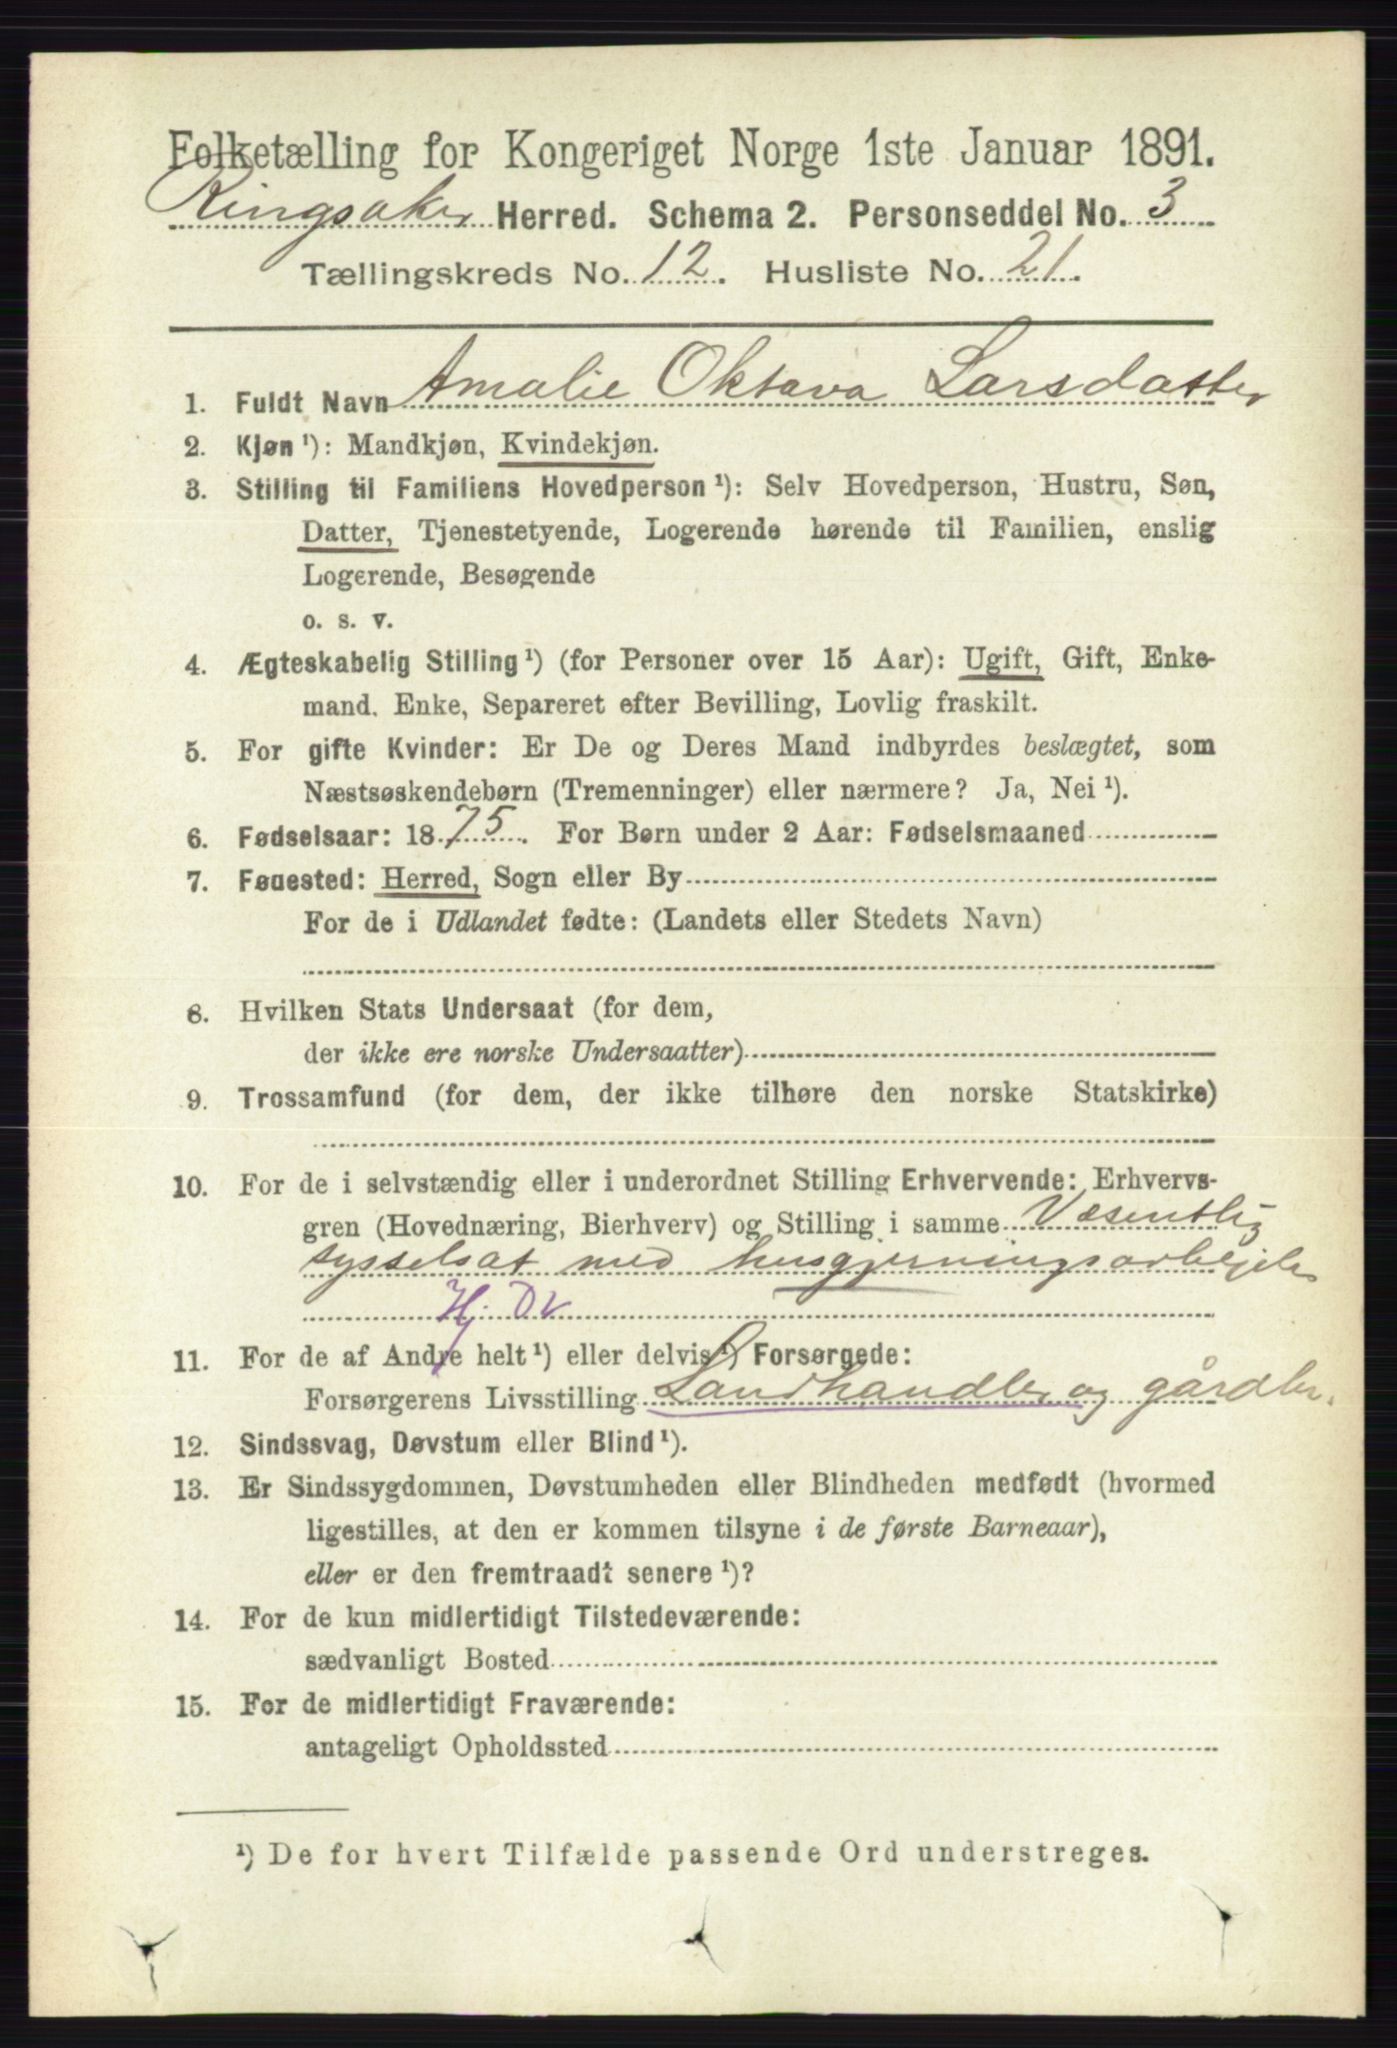 Folketælling for Kongeriget Norge 1ste Januar 1891.
Ringsaker Herred. Schema 2. Personseddel No. 3
Tællingskreds No. 12. Husliste No. 21.
1. Fuldt Navn Amalie Oktava Larsdatter
2. Kjøn ¹): Mandkjøn, Kvindekjøn.
3. Stilling til Familiens Hovedperson ¹): Selv Hovedperson, Hustru, Søn,
Datter, Tjenestetyende, Logerende hørende til Familien, enslig
Logerende, Besøgende
o. s. v.
4. Ægteskabelig Stilling ¹) (for Personer over 15 Aar): Ugift, Gift, Enke-
mand. Enke, Separeret efter Bevilling, Lovlig fraskilt.
5. For gifte Kvinder: Er De og Deres Mand indbyrdes beslægtet, som
Næstsøskendebørn (Tremenninger) eller nærmere? Ja, Nei ¹).
6. Fødselsaar: 1875. For Børn under 2 Aar: Fødselsmaaned
7. Føuested: Herred, Sogn eller By
For de i Udlandet fødte: (Landets eller Stedets Navn)
8. Hvilken Stats Undersaat (for dem,
der ikke ere norske Undersaatter)
9. Trossamfund (for dem, der ikke tilhøre den norske Statskirke)
10. For de i selvstændig eller i underordnet Stilling Erhvervende: Erhvervs-
gren (Hovednæring, Bierhverv) og Stilling i samme Væsentlig
sysselsat med husgjerningsarbejde
Hj. Dv
11. For de af Andre helt ¹) eller delvis ¹) Forsørgede:
Forsørgerens Livsstilling Landhandler og gårdbr.
12. Sindssvag, Døvstum eller Blind ¹).
13. Er Sindssygdommen, Døvstumheden eller Blindheden medfødt (hvormed
ligestilles, at den er kommen tilsyne i de første Barneaar),
eller er den fremtraadt senere ¹)?
14. For de kun midlertidigt Tilstedeværende:
sædvanligt Bosted
15. For de midlertidigt Fraværende:
antageligt Opholdssted
¹) De for hvert Tilfælde passende Ord understreges.